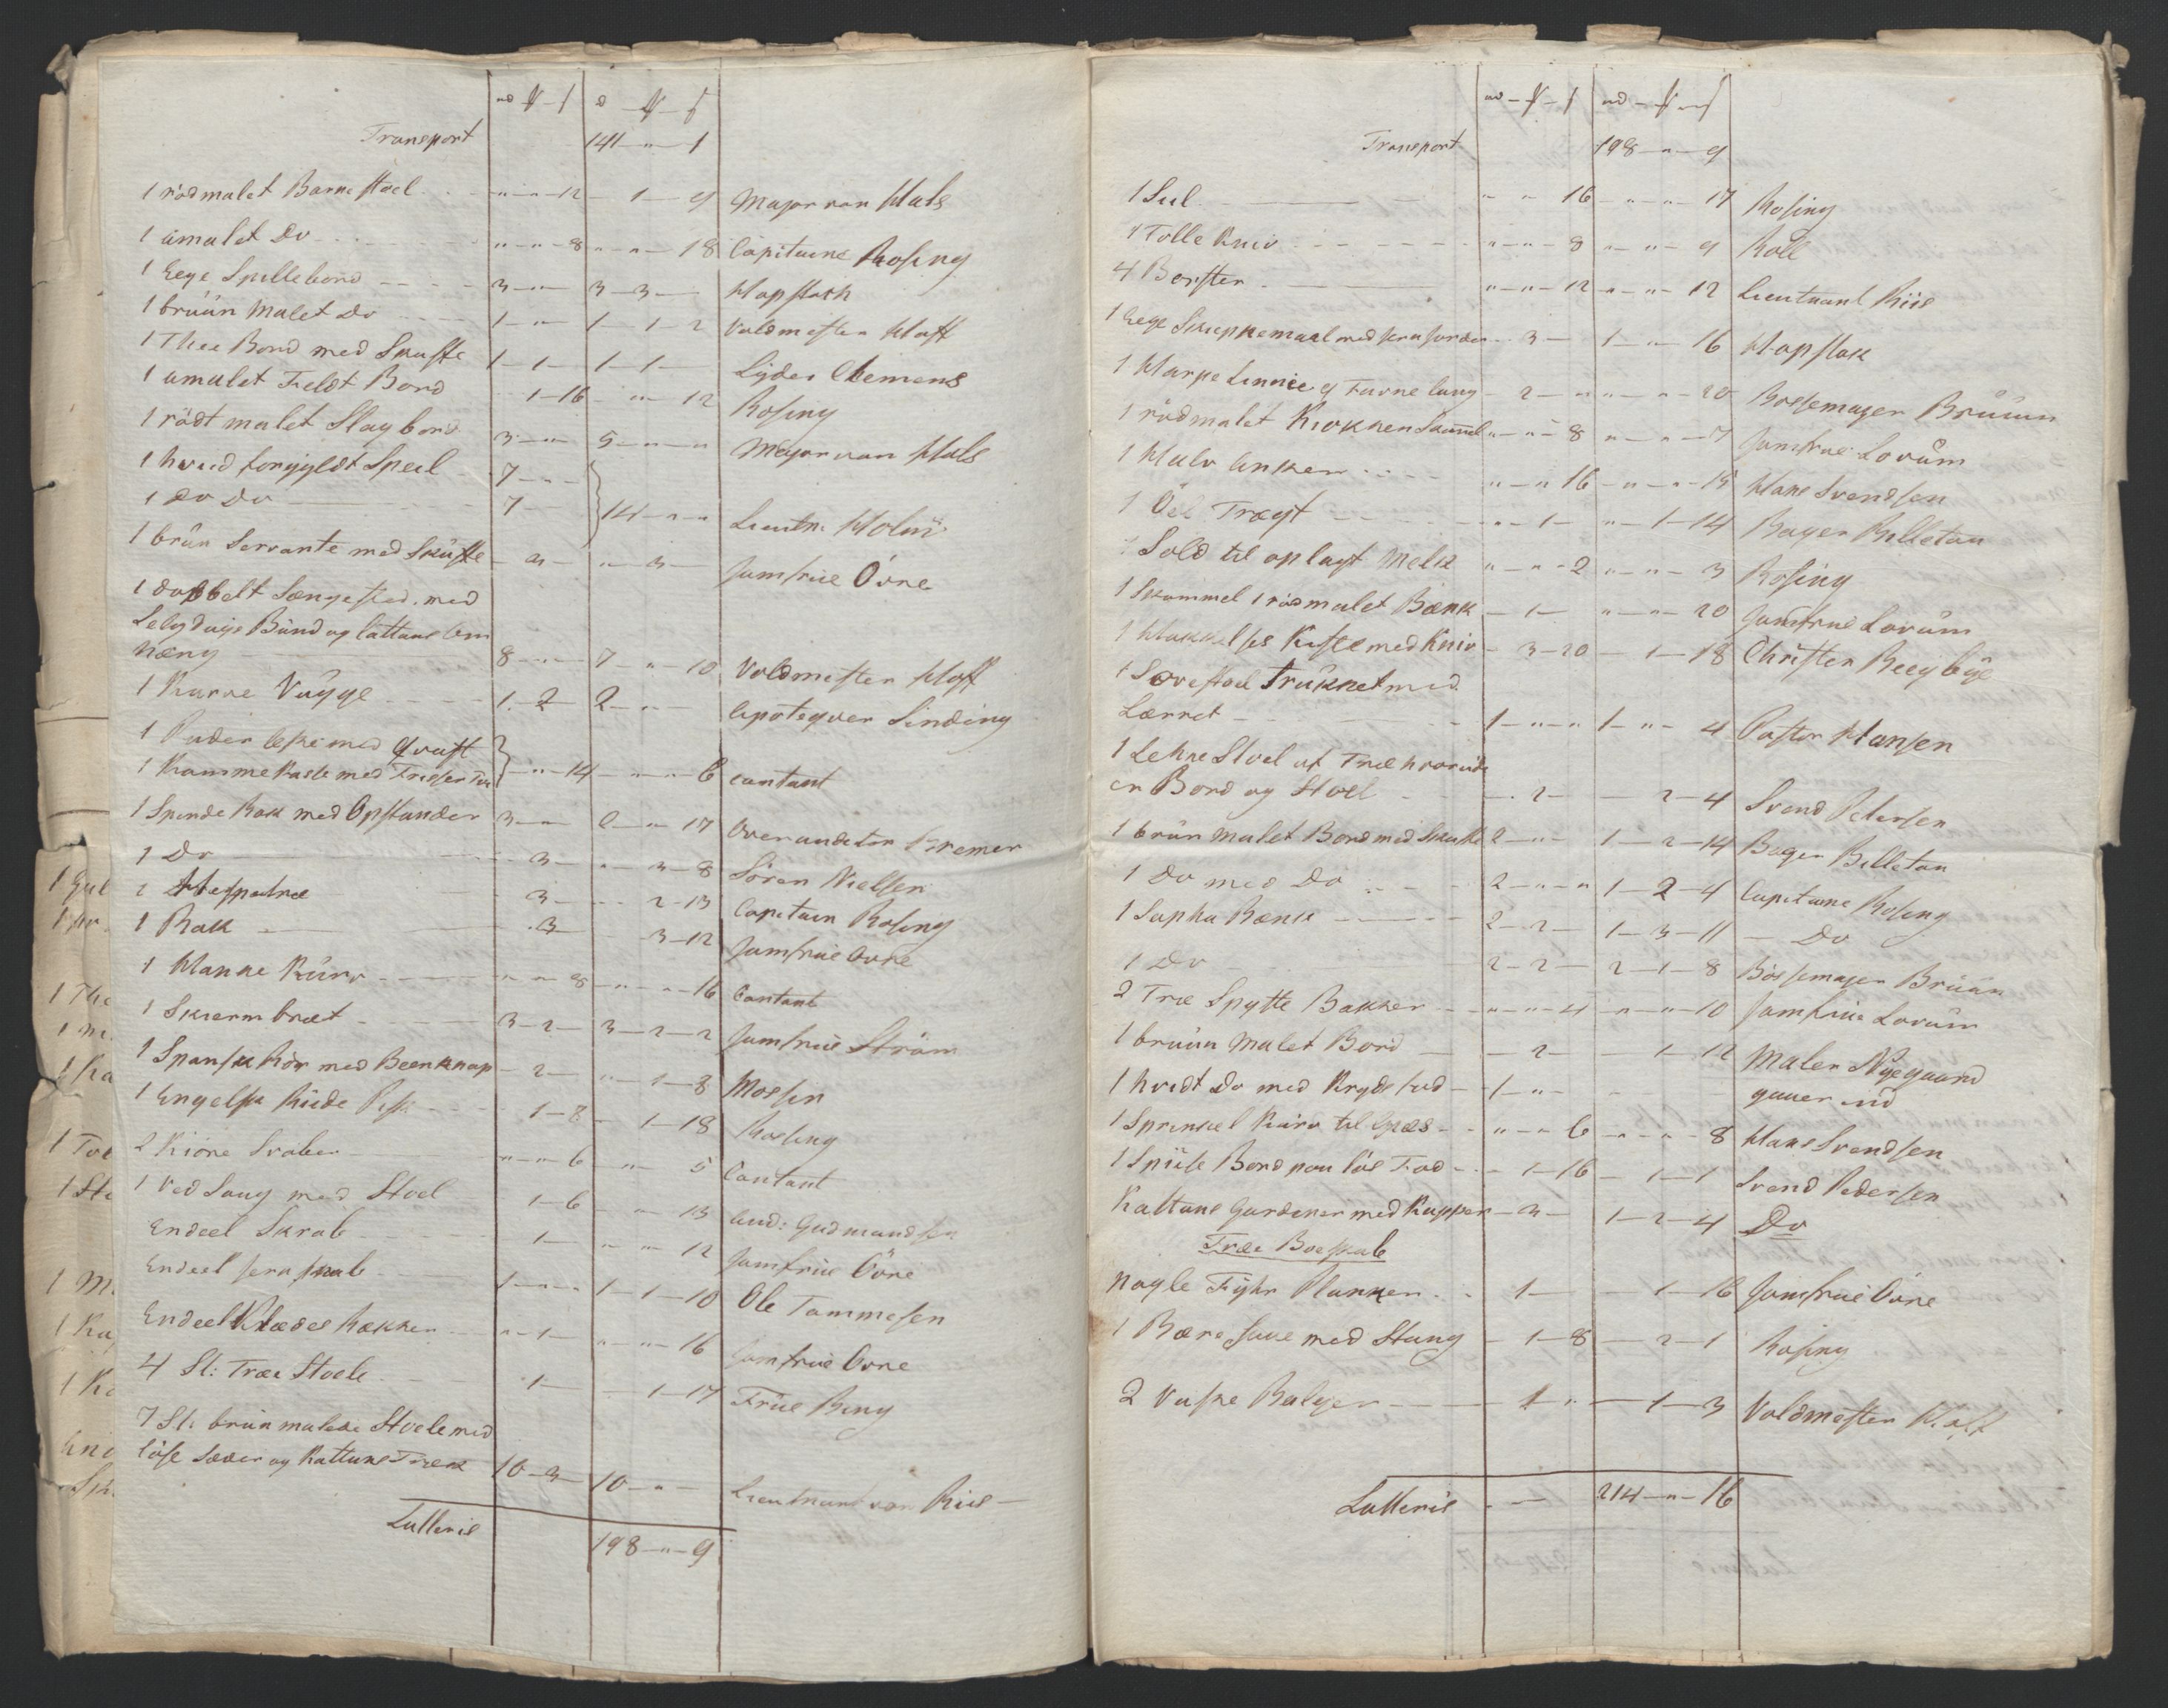 Transport 141 — " — 1
1 rödmalet Barnestoel " — " — 12 — 1 — 9 Major van Hals
1 umalet Do " — " — 8 " — " — 18 Capitaine Rosing
1 Eege Spillebord 3 — " — 3 — 3 — Hapstock
1 bruun Malet Do 1 — " — 1 — 1 — 2 Voldmester Hoff
1 Thee Bord med Skuffe 1 — 1 — 1 — 1 — Lyder Clemens
1 umalet Feldt Bord 1 — 16 — " — 12 Rosing
1 rödt malet Slagbord 3 — " — 5 — " — " Major van Hals
1 hvid forgyldt Speil 7 — " —
1 Do Do 7 — 14 — " — " Lieutn: Holm
1 brun Servante med Skuffe — 3 — " — 3 — Jomfrue Övre
1 dobbelt Sængested, med
Bund og Cattuns Om
hæng 8 — " — 7 — " — 10 Voldmester Hoff
1 Kurve Vugge 1 — 2 — 2 — " — Apoteqver Sinding
1 Puder Eske med Qvast
1 Kamme Kaste med " — 14 — " — " 6 contant
1 Spende Rok med Opstander 3 — " — 2 — " — 17 Overauditør Bremer
1 Do 3 — " — 3 — 8 Sören Nielsen
2 Hespetræ 3 — 2 — 13 Capitain Rosing
1 Rok 3 — 3 — 12 Jomfrue Övre
1 Hanke Kurv " — " — 8 — " — " — 16 Contant
1 Skierm bræt 3 — 2 — 3 — 2 — 2 Jomfrue Ström
1 Spansk Rör med Been knap — 2 — " — 1 — 8 Mossin
1 Engelsk Riide Pisk 1 — 8 — 1 — 18 Rosing
2 Kiöne Svaber " — " — 6 — " — 5 Contant
1 Ved Saug med Stoel 1 — 6 — " — 13 And: Gudmundsen
Endeel Skrab 1 — " — " — 12 Jomfrue Övre
Endeel Jern skrab 1 — " — " 1 — 1 — 10 Ole Tommesen
Endeel Klædes Rækker " — 1 — " — " — 16 Jomfrue Övre
4 St: Træe Stoele 1 — — 1 — 17 Frue Bing
7 St: brun malede Stoele med
löse Sæder og Kattuns Træk 10 — 3 — 10 — " — Lieutnant von Riis —
Latteris 198 — " — 9
Transport 198 — " — 9
1 Sul " — " 16 — " — " — 17 Rosing
1 Tolle Kniv " — " — 8 " — " — 9 Roll
4 Borster " — " — 12 " — " — 12 Lieutnant Riis
1 Eege Skieppemaal med 3 — 1 — " — 16 Hapstok
1 Harpe Linnie og — 2 — " — " — 20 Bossemager Brüün
1 rödmalet Kiøkken Skammel " — " — 8 " — " — 7 Jomfrue Lorum
1 Halv Anker " — " — 16 — " — " — 15 Hans Svendsen
1 Öel Tragt " — 1 — " — 1 — 14 Bager Billetou
1 Sold til oplagt Melk " — " — 2 " — " — 3 Rosing
1 Skammel 1 rödmalet Bænk — 1 — " — " — 20 Jomfrue Lorum
1 Hakkelses Kiste med Kniv — 3 — 20 — 1 — 18 Christen
1 Sovestoel Trukket med
Lærret 1 — " — " 1 — " — 4 Pastor Hansen
1 Lehne Stoel af Træ hvorudi
er Bord og Stoel — 2 — — 2 — 4 Svend Pedersen
1 brün malet Bord med Skuffe 2 — " — 1 — 2 — 14 Bager Billetou
1 Do med Do 2 — " — " 1 — 2 — 4 Capitaine Rosing
1 Sopha Bænk 2 — 2 — 1 — 3 — 11 — Do
1 Do 2 — 2 — 2 — 1 — 8 Bössemager Brüün
2 Træ Spytte Bakker " — " — 4 — " — " — 10 Jomfrue Lorum
1 bruun Malet Bord — 2 — — 1 — 12 Maler Nygaard
1 hvidt Do med Kryds fod — 1 — " gaaer ud
1 Sprinkel Kurv til " — " — 6 — " — " — 8 Hans Svendsen
1 Spiise Bord paa lös Fod — 1 — 16 — 1 — 1 Svend Pedersen
Kattuns Gardiner med Kapper — 3 — 1 — 2 — 4 Do
Træe Boeskab
Nogle Fyhr Planker 1 — — 1 — 16 Jomfrue Övre
1 Bære med Stang — 1 — 8 — 2 — 1 Rosing
2 Vaske Balger 1 — " — 1 — 3 Voldmester Hoff
Latteris 214 — " — 16